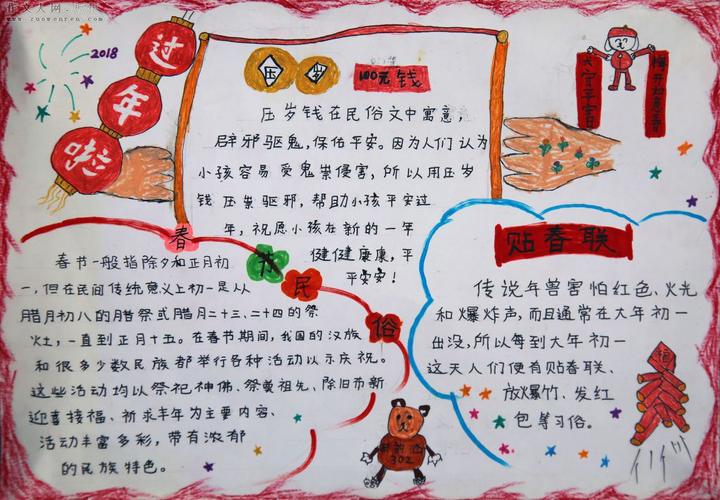 www.zuowenren.com
2018
过年啦
压岁
100元钱
压岁钱在民俗文中寓意,
辟邪驱鬼,保佑平安。因为人们认为
小孩容易受鬼祟侵害,所以用压岁
钱压祟驱邪,帮助小孩平安过
年,祝愿小孩在新的一年
健健康康,平
平安安!
春节民俗
春节一般指除夕和正月初
一,但在民间传统意义上初一是从
腊月初八的腊祭或腊月二十三、二十四的祭
灶,一直到正月十五。在春节期间,我国的汉族
和很多少数民族都举行各种活动以示庆祝。
这些活动均以祭祀神佛、祭奠祖先、除旧布新
迎喜接福、祈求丰年为主要内容、
活动丰富多彩,带有浓郁
的民族特色。
贴春联
传说年兽害怕红色、火光
和爆炸声,而且通常在大年初一
出没,所以每到大年初一
这天人们便有贴春联、
放爆竹、发红
包等习俗。
福
302